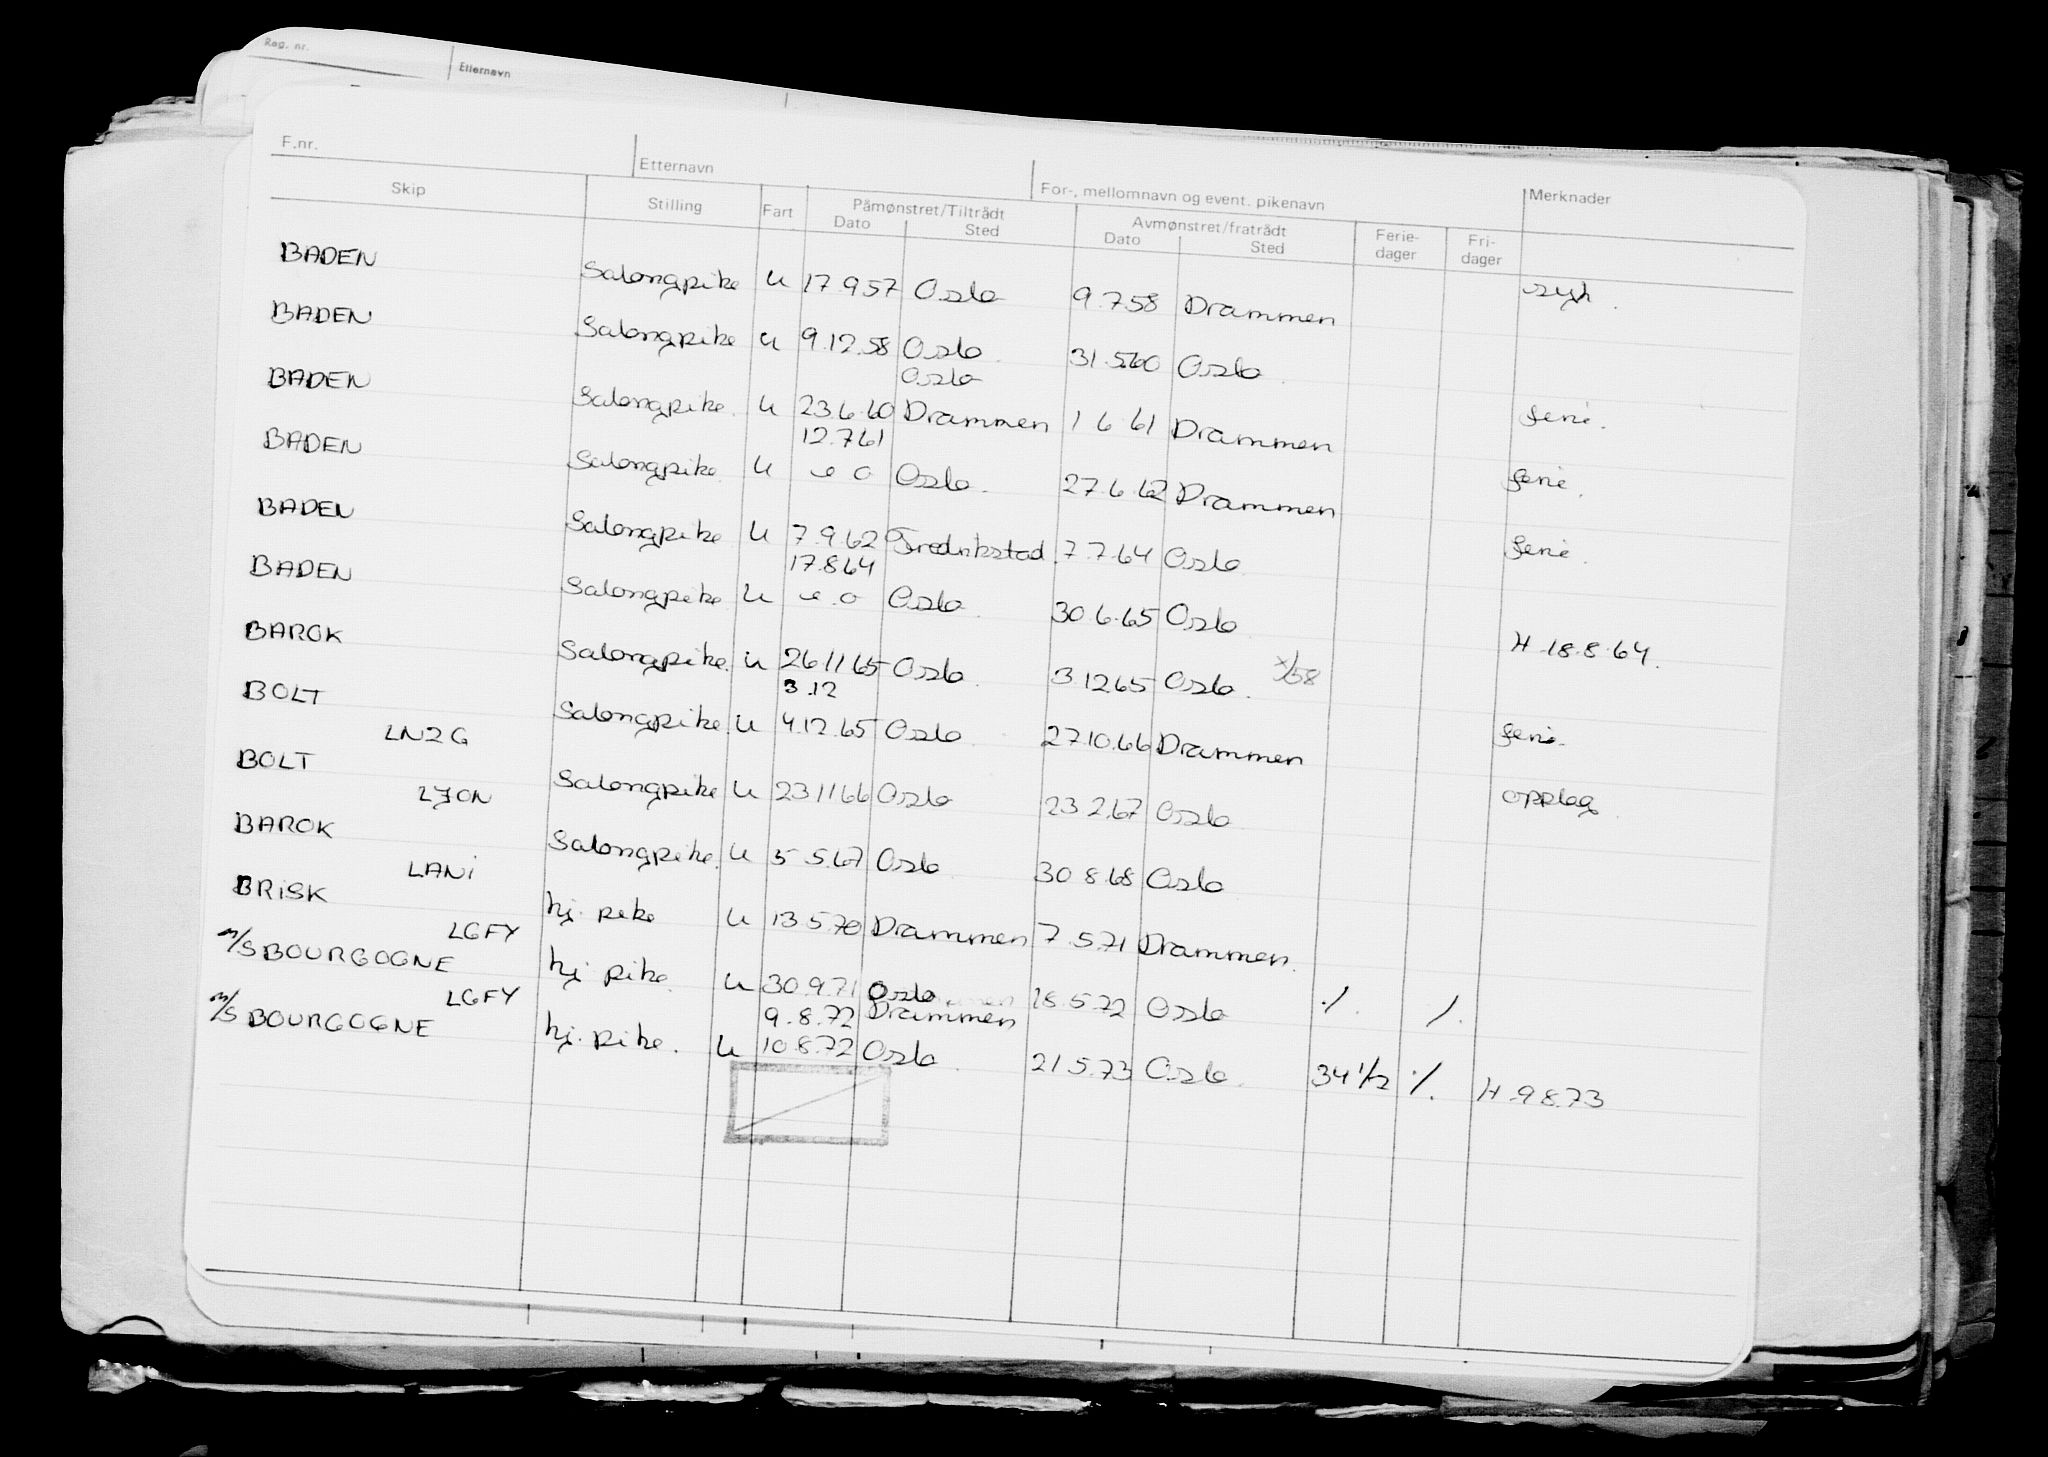 Reg. nr. Etternavn
F.nr. Etternavn For-, mellomnavn og event. pikenavn Merknader
Skip Stilling Fart Påmønstret/Tiltrådt Avmønstret/fratrådt Ferie- Fri-
Dato Sted Dato Sted dager dager
BADEN Salongpike u 17.9.57 Oslo 9.7.58 Drammen syk.
BADEN Salongpike u 9.12.58 Oslo 31.5.60 Oslo
Oslo
BADEN Salongpike. u 23.6.60 Drammen 1 6 61 Drammen ferie.
12.7.61
BADEN Salongpike. u Oslo. 27.6.62 Drammen ferie.
BADEN Salongpike u 7.9.62 Fredrikstad. 7.7.64 Oslo ferie.
17.8.64
BADEN Salongpike u Oslo. 30.6.65 Oslo H. 18.8.64.
BAROK Salongpike. u 26.11.65 Oslo. 3.12.65 Oslo. x/58
3.12
BOLT Salongpike. u 4.12.65 Oslo. 27.10.66 Drammen ferie.
LN2G
BOLT Salongpike u 23.11.66 Oslo 23.2.67 Oslo opplag.
LJON
BAROK Salongpike. u 5 5.67 Oslo 30.8.68 Oslo
LANI
BRISK hj. pike u 13.5.70 Drammen 7.5.71 Drammen.
LGFY
M/S BOURGOGNE hj. pike. u 30.9.71 Oslo 18.5.72 Oslo ./. /.
LGFY 9.8.72 Drammen
M/S BOURGOGNE hj. pike. u 10.8.72 Oslo. 21.5.73 Oslo. 34 1/2 ./. H. 9.8.73